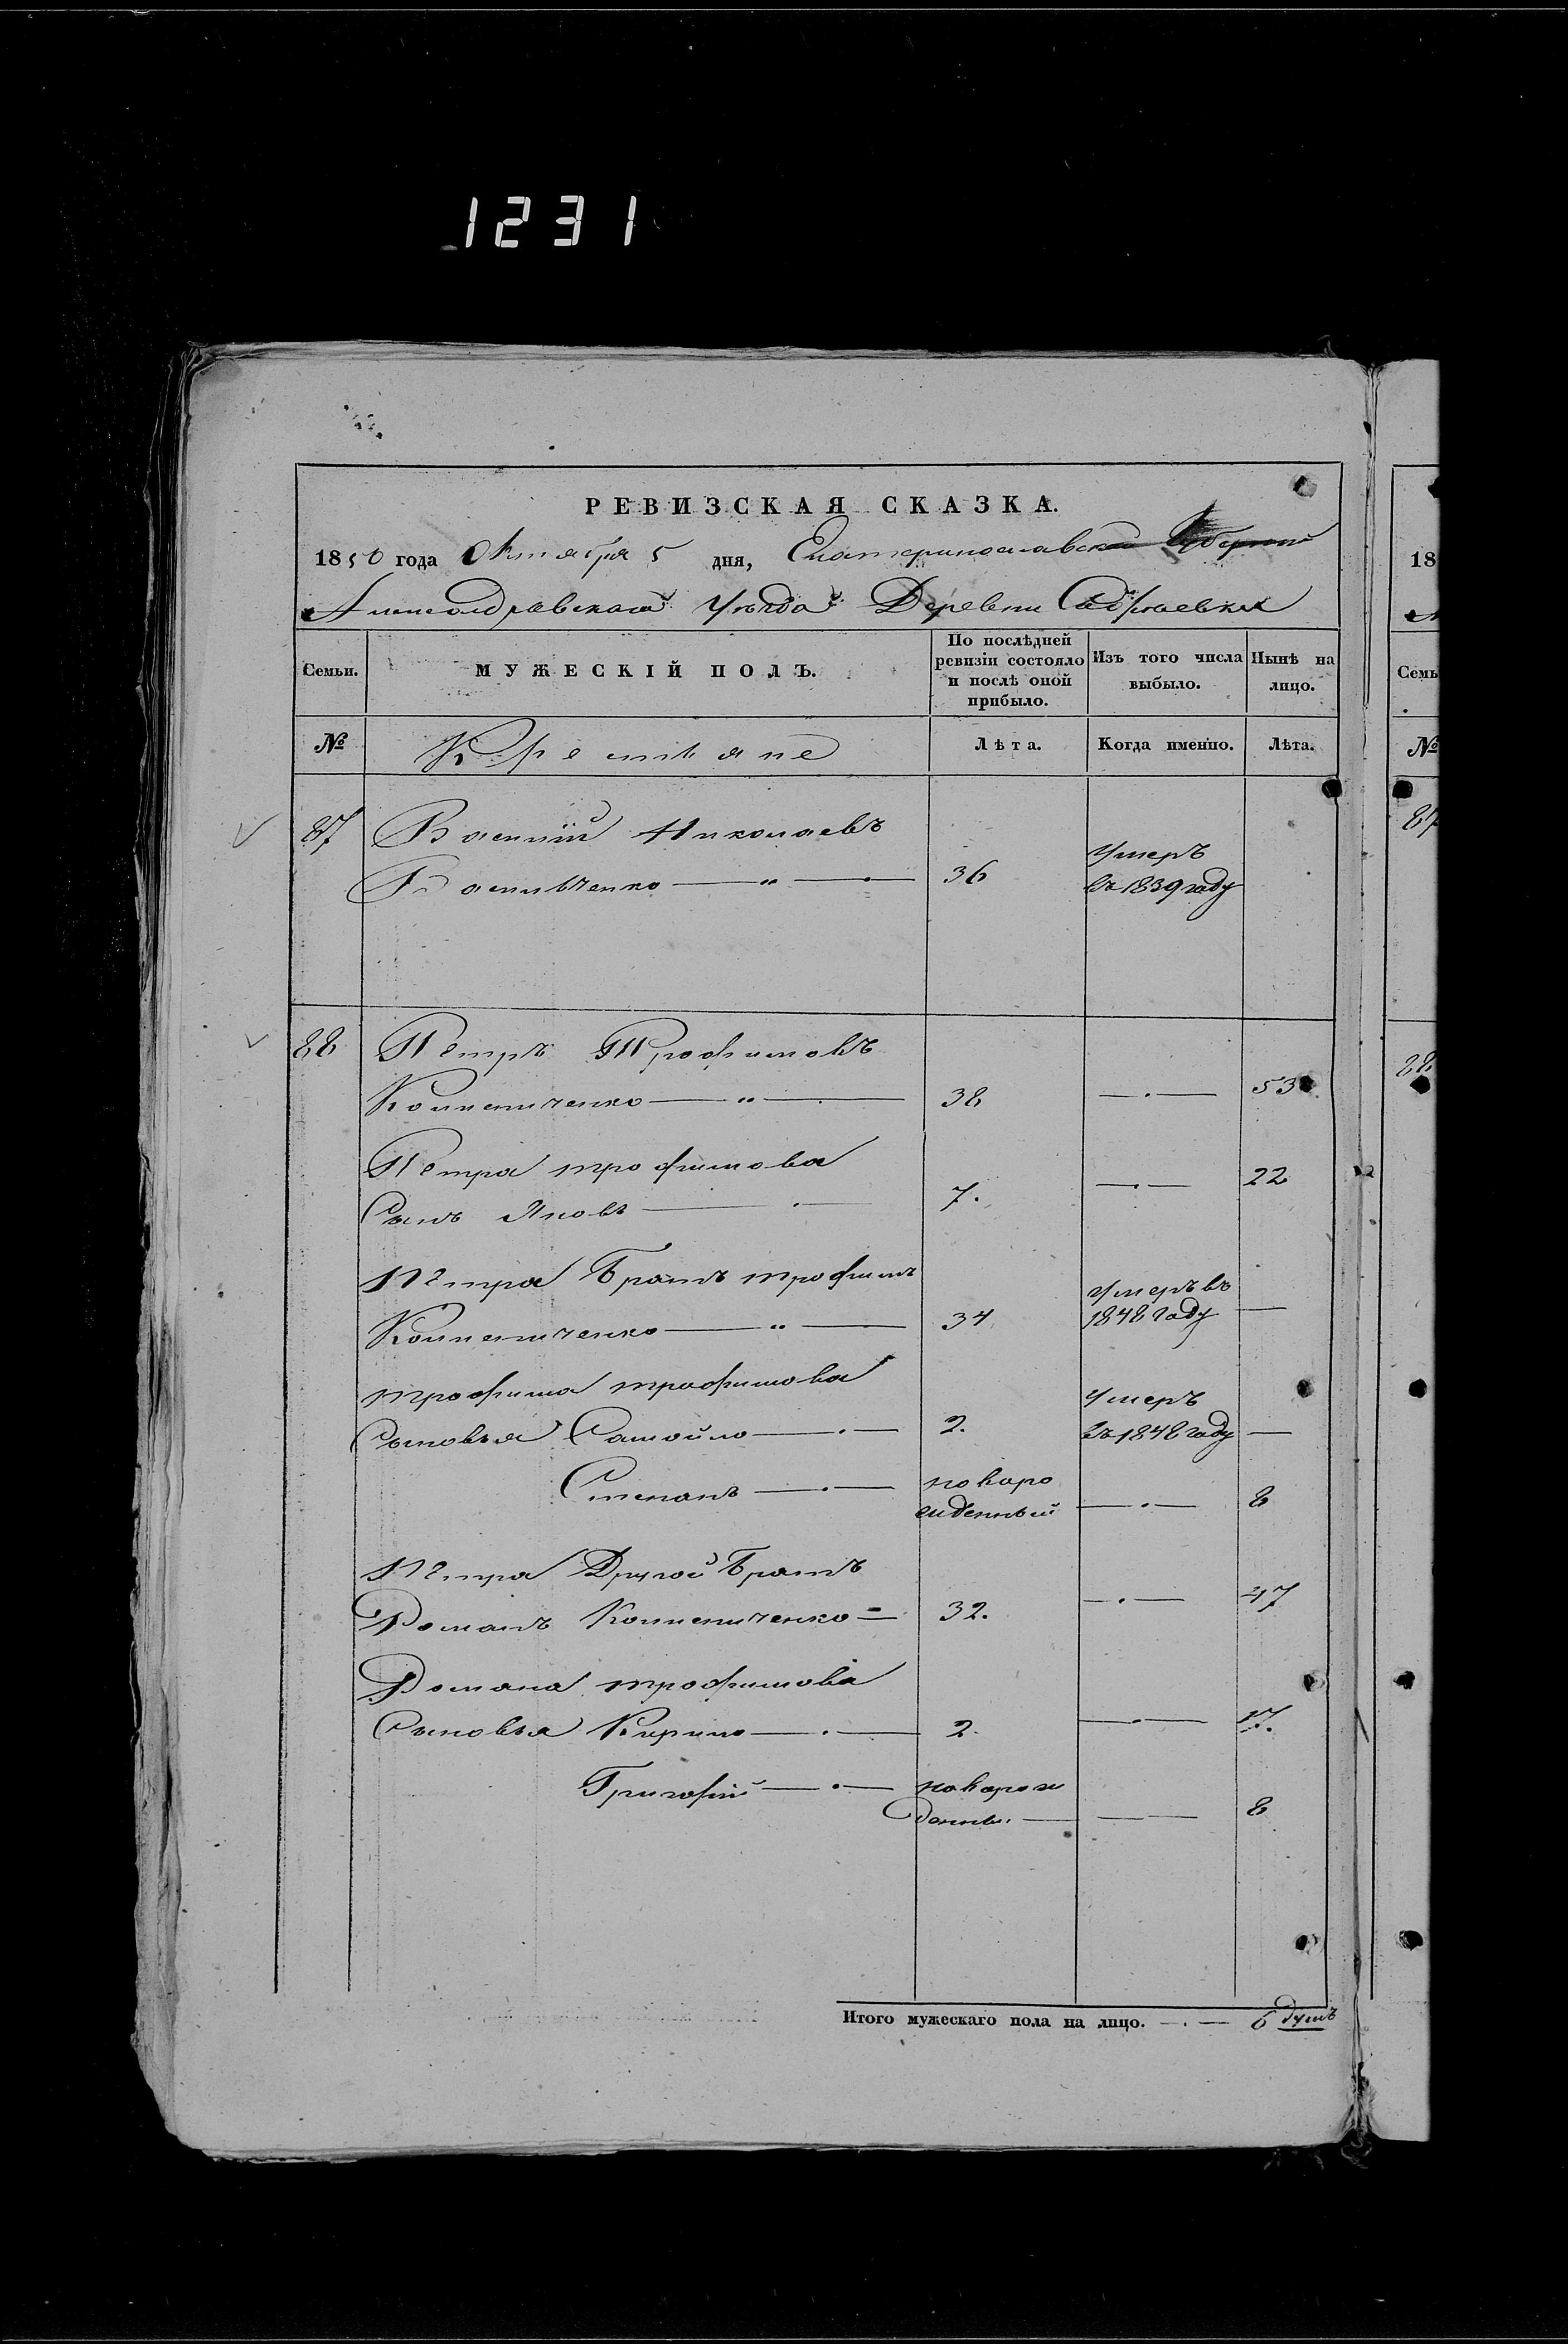 1231
РЕВИЗСКАЯ СКАЗКА.
1850 года Октября 5 дня, Екатеринославской Губернии
Александровского Уезда Деревни
Семьи.
МУЖЕСКІЙ ПОЛЪ.
По послѣдней ревизіи состояло и послѣ оной прибыло.
Изъ того числа выбыло.
Нынѣ на лицо.
№
Крестьяне
Лѣта.
Когда именно.
Лѣта.
87 Василій Николаевъ
Василченко 36 Умеръ въ 1839 году
88 Петръ Трофимовъ
38 53
Петра трофимова
Сынъ Яковъ 7. 22
Петра Братъ трофимъ
34 Умеръ въ 1848 году
трофима трофимова
Сыновья Самойло 2. Умеръ въ 1848 году
Степанъ новорожденный 8
Петра Другой Братъ
Романъ 32. 47
Романа трофимова
Сыновья Кирило 2. 17.
Григорій новорожденны. 8
Итого мужескаго пола на лицо. 6 душъ
18
Семь
№
87
88